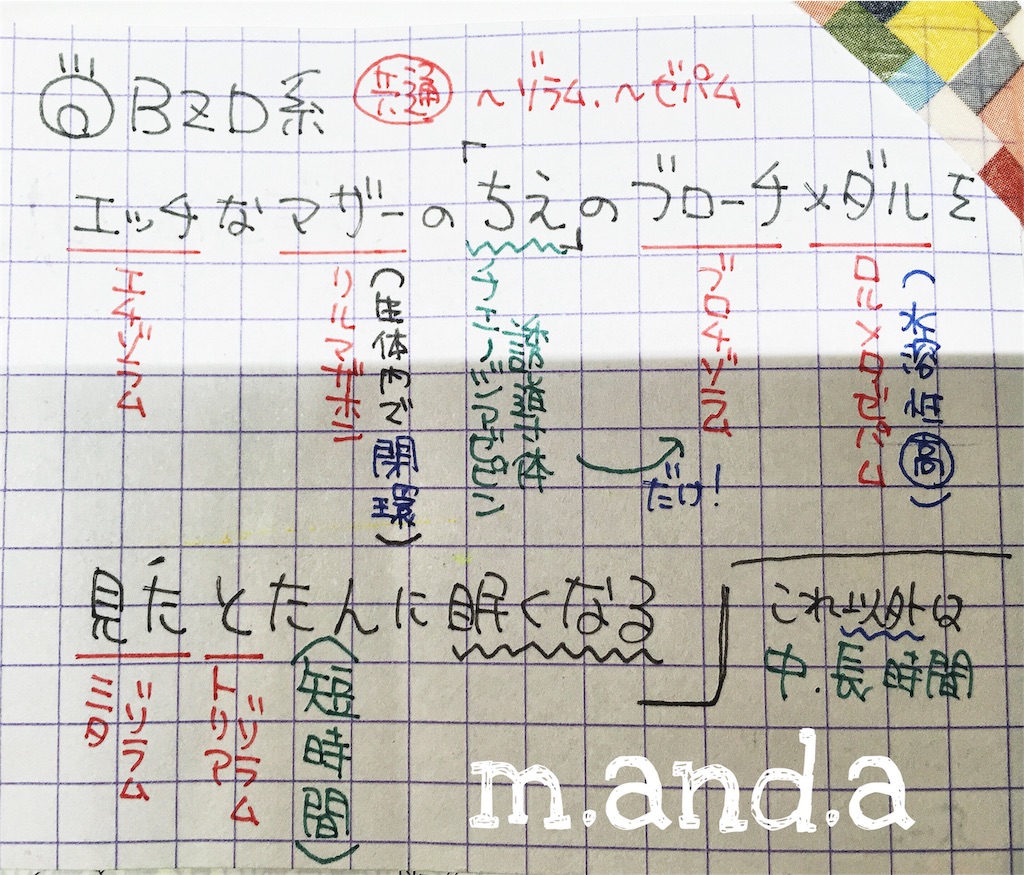 BZD系 共通 ～ゾラム、～ゼパム
エッチなマザーの「ちえ」のブローチメダルを
エチゾラム
リルマザホン
(生体内で閉環)
ブロチゾラム
だけ!
ロルメタゼパム
見たとたんに眠くなる
これ以外は
中.長時間
ミダ
ゾラム
トリア
ゾラム
(短時間)
m.and.a